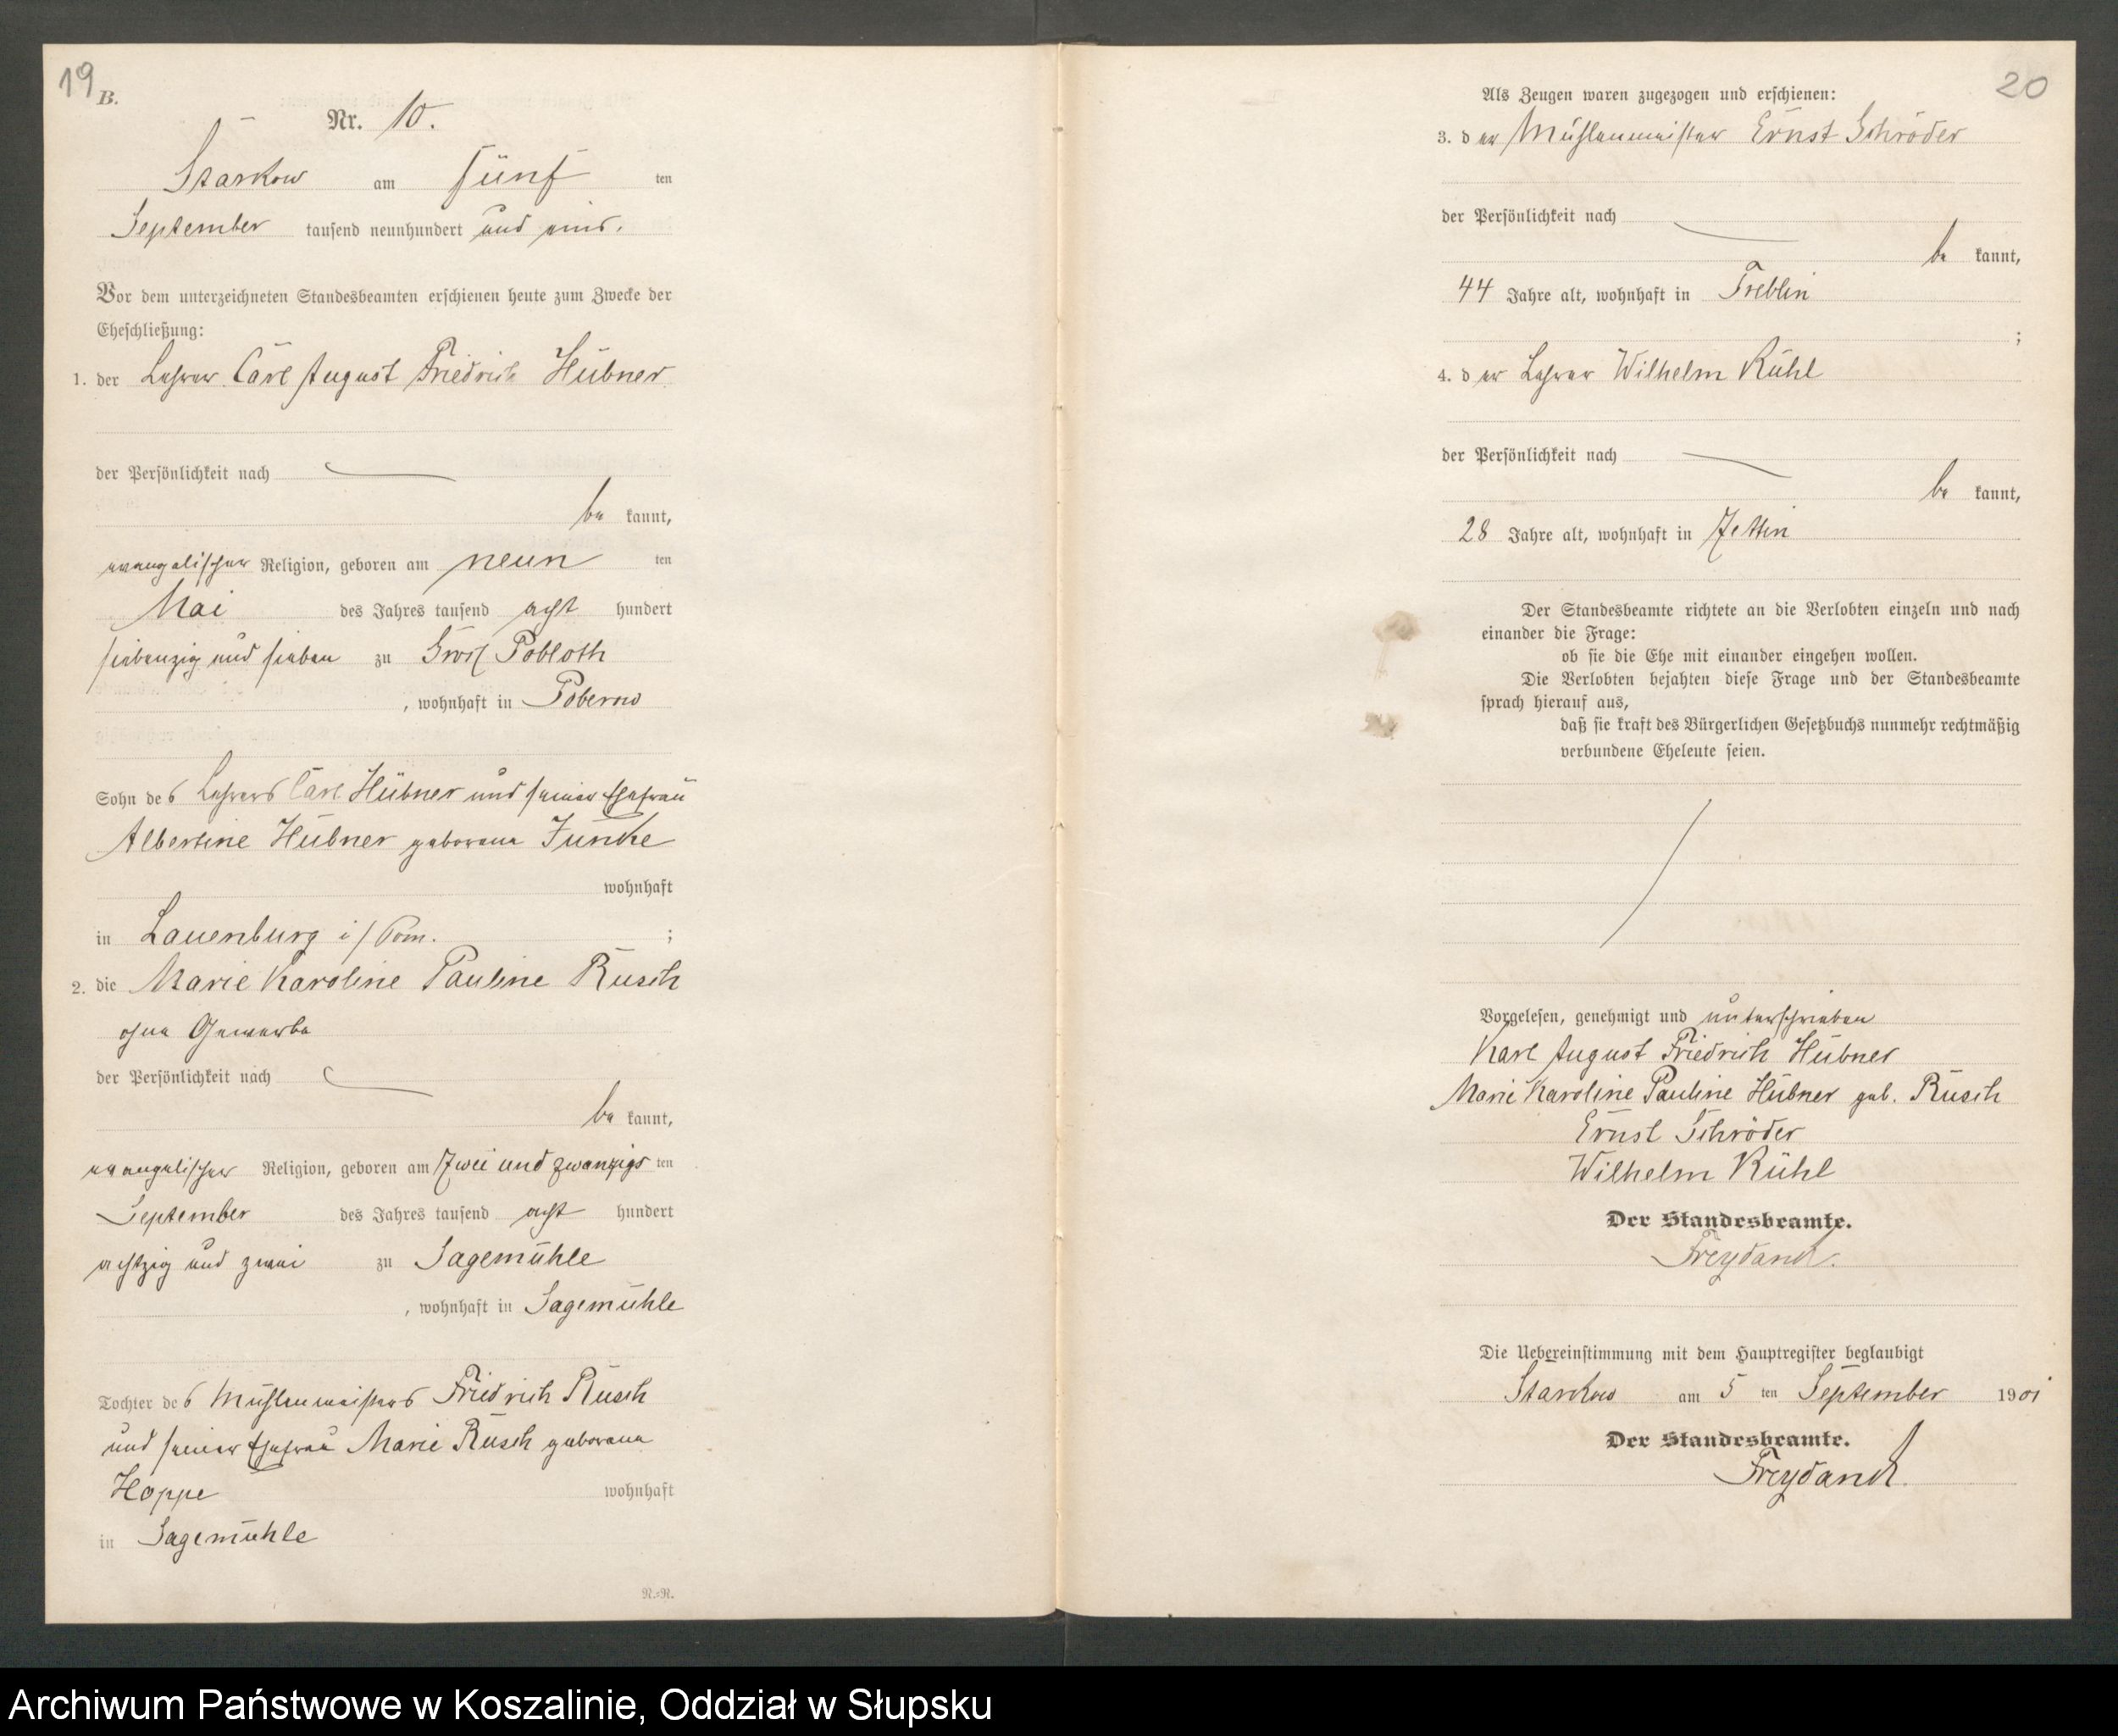 19
B.
Nr. 10.
Starkow am fünf ten
September tausend neunhundert und eins.
Vor dem unterzeichneten Standesbeamten erschienen heute zum Zwecke der
Eheschließung:
1. der Lehrer Carl August Friedrich Hübner
der Persönlichkeit nach
be kannt,
evangelischer Religion, geboren am neun ten
Mai des Jahres tausend acht hundert
siebenzig und sieben zu Groß Pobloth
, wohnhaft in Poberow
Sohn des Lehrers Carl Hübner und seiner Ehefrau
Albertine Hübner geborene Juncke
wohnhaft
in Lauenburg i/Pom. ;
2. die Marie Karoline Pauline Rusch
ohne Gewerbe
der Persönlichkeit nach
be kannt,
evangelischer Religion, geboren am zwei und zwanzigs ten
September des Jahres tausend acht hundert
achtzig und zwei zu Sagemühle
, wohnhaft in Sagemühle
Tochter des Mühlenmeisters Friedrich Rusch
und seiner Ehefrau Marie Rusch geborene
Hoppe wohnhaft
in Sagemühle
N.=N.
20
Als Zeugen waren zugezogen und erschienen:
3. der Mühlenmeister Ernst Schröder
der Persönlichkeit nach
be kannt,
44 Jahre alt, wohnhaft in Treblin
;
4. der Lehrer Wilhelm Rühl
der Persönlichkeit nach
be kannt,
28 Jahre alt, wohnhaft in Zettin
Der Standesbeamte richtete an die Verlobten einzeln und nach
einander die Frage:
ob sie die Ehe mit einander eingehen wollen.
Die Verlobten bejahten diese Frage und der Standesbeamte
sprach hierauf aus,
daß sie kraft des Bürgerlichen Gesetzbuchs nunmehr rechtmäßig
verbundene Eheleute seien.
Vorgelesen, genehmigt und unterschrieben
Karl August Friedrich Hübner
Marie Karoline Pauline Hübner geb. Rusch
Ernst Schröder
Wilhelm Rühl
Der Standesbeamte.
Freydanck.
Die Uebereinstimmung mit dem Hauptregister beglaubigt
Starkow am 5 ten September 1901
Der Standesbeamte.
Freydanck.
Archiwum Państwowe w Koszalinie, Oddział w Słupsku